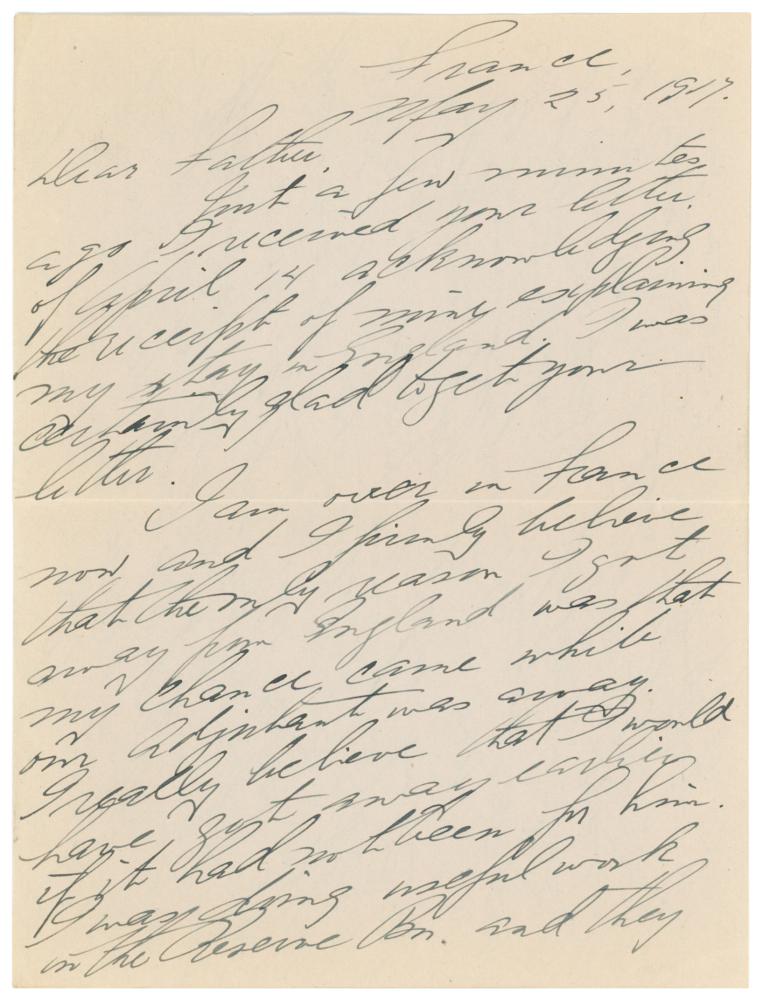 France,
May 25, 1917.
Dear Father,
Just a few minutes
ago I received your letter
of April 14 acknowledging
the receipt of mine explaining
my stay in England. I was
certainly glad to get your
letter.
I am over in France
now and I firmly believe
that the only reason I got
away from England was that
my chance came while
our Adjutant was away.
I really believe that I would
have got away earlier
if it had not been for him.
I was doing useful work
in the Reserve Bn. and they